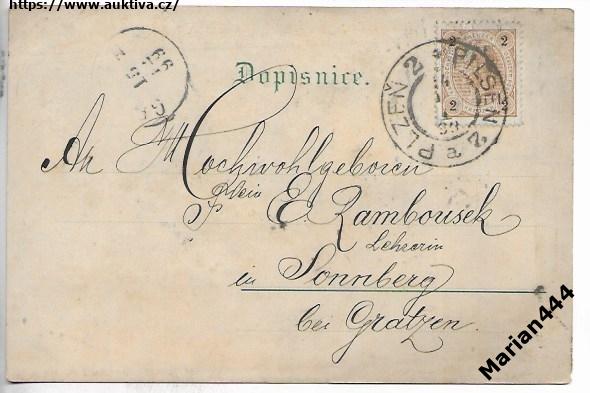 https://www.auktiva.cz/
99
2
2
Dopisnice.
PILSEN 2
PLZEŇ 2
a
2
2
An Hochwohlgeboren
Klein
E. Zambousek
Lehrerin
in Sonnberg
bei Gratzen.
Marian444